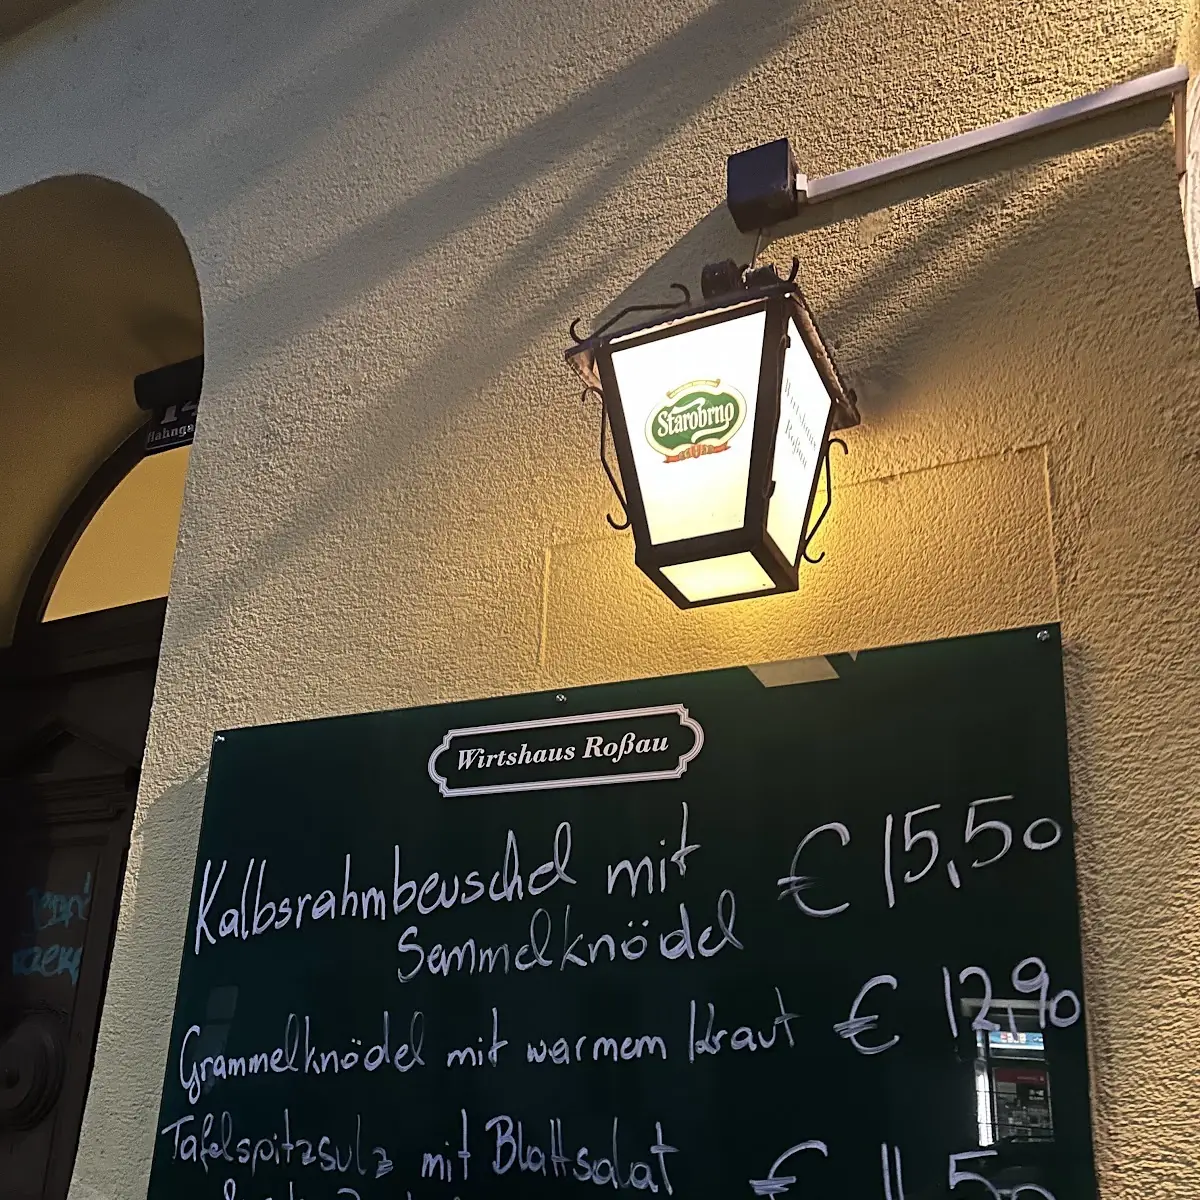 Starobrno
Wirtshaus
Roßau
Wirtshaus Roßau
Kalbsrahmbeuschel mit € 15,50
Semmelknödel
Grammelknödel mit warmem Kraut € 12,90
Tafelspitzsulz mit Blattsalat € 11,50